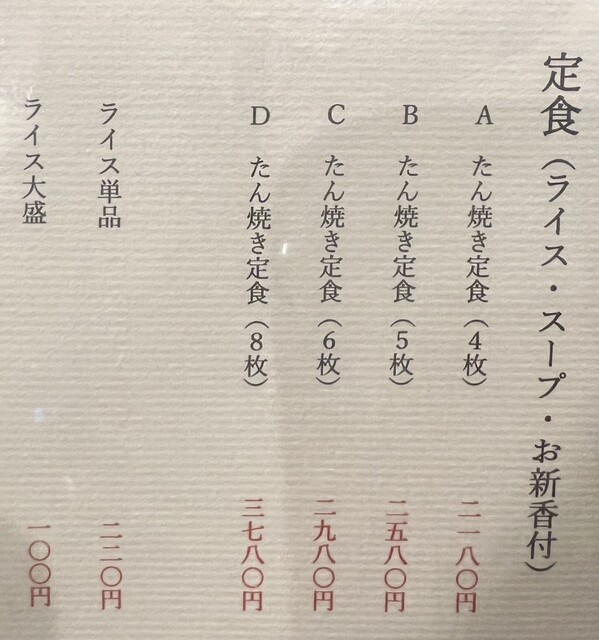 定食（ライス・スープ・お新香付）
A たん焼き定食（4枚） 二一八〇円
B たん焼き定食（5枚） 二五八〇円
C たん焼き定食（6枚） 二九八〇円
D たん焼き定食（8枚） 三七八〇円
ライス単品 二二〇円
ライス大盛 一〇〇円